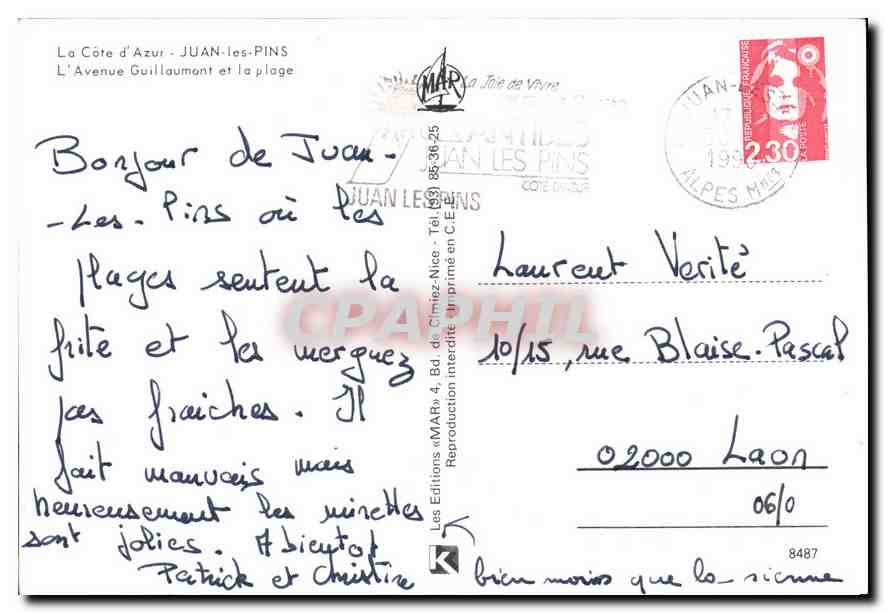 La Côte d'Azur - JUAN-les-PINS
L'Avenue Guillaumont et la plage
Bonjour de Juan-
-Les-Pins où les
plages sentent la
frite et les merguez
pas fraiches. Il
fait mauvais mais
heureusement les minettes
sont jolies. A bientot
Patrick et Christine
MAR
Les Editions «MAR» 4, Bd. de Cimiez-Nice - Tél. (93) 85-36-25
Reproduction interdite - Imprimé en C.E.E.
K
La Joie de Vivre
ANTIBES
JUAN LES PINS
CÔTE D'AZUR
JUAN LES PINS
JUAN-LES-
17
199
ALPES Mmes
REPUBLIQUE FRANÇAISE
2.30
LA POSTE
Laurent Verité
10/15, rue Blaise-Pascal
02000 Laon
06/0
8487
bien moins que la sienne
CPAPHIL